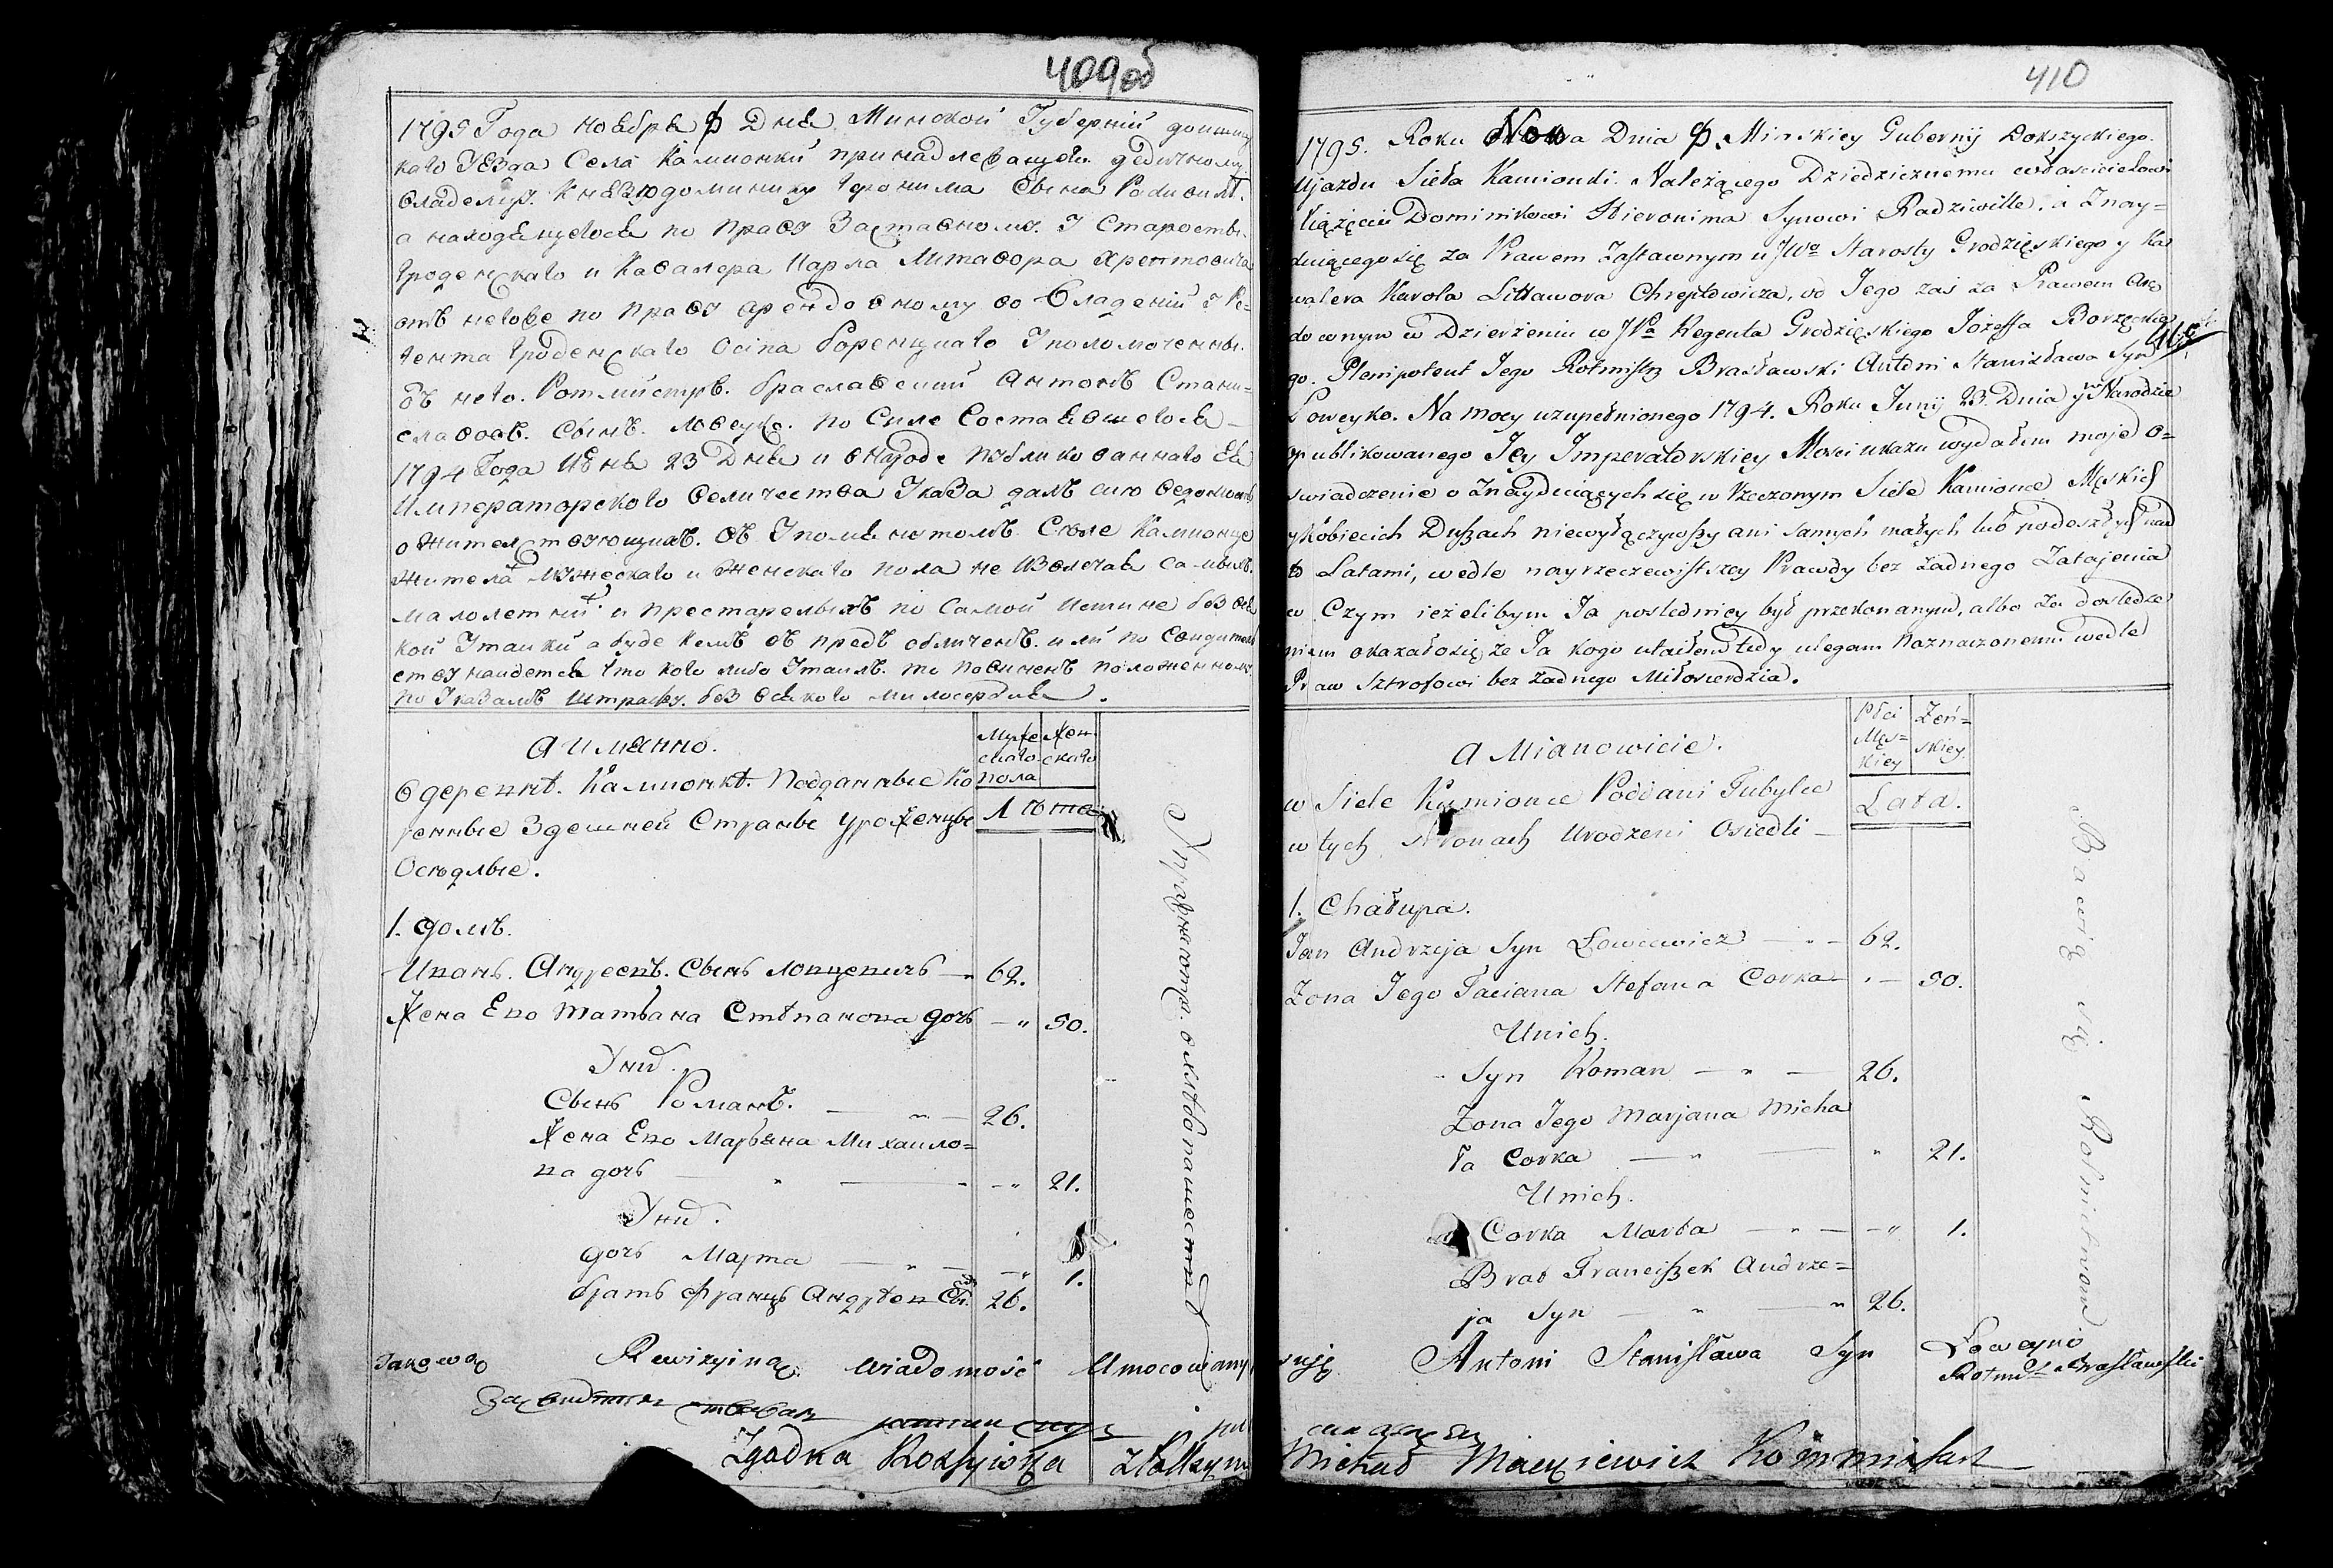 409 об
1795 Года ноября ф Дня Минской Губернїи докшиц
каго Уезда Села Камионки принадлежащего дедичному
владельцу Князю доминику Геронима Сыну Радивилъ
а находящегося по праву Заставному У Старосты
Гроденскаго и Кавалера Карла Литавора Хрептовича
отъ него же по праву арендовному во Владенїи У Ре-
гента Гроденскаго Осипа Боренцкаго Уполомоченны
отъ него Ротмистръ браславский Антонъ Стани-
славовъ Сынъ Ловейко по Силе Состоявшегося
1794 Года Июня 23 Дня и в народе публикованнаго Ея
Императорского величества Указа далъ сию ведомость
о жительствующихъ въ Упомянутомъ Селе Камионце
жителя мужескаго и женскаго пола не Изключая самыхъ
малолетний и престарелыхъ по Самой Истине без вся
кой Утайки а буде кемъ въ предъ обличенъ или по Свидетель
ству найдется что кого либо Утаилъ то повиненъ положенному
по Указамъ Штрафу без всякого милосердия.
А имянно.
Муже скаго пола
Жен скаго
В деревнѣ Камионкѣ Подданные Ко
Лѣта
ренные Здешней Страны Уроженцы
Оседлые.
1. домъ.
Иванъ Андреевъ Сынъ Ловцевичь — 62.
Жена Его Татьяна Стѣпанова дочь — " 50.
Униа.
Сынъ Романъ. — " — 26.
Жена Его Марьяна Михаило=
ва дочь — " — " 21.
Униа.
дочь Марта — " — " 1.
братъ Францъ Андреев Сы. 26.
Takową Rewizyiną Wiadomość Umocowany
Zgodna Rosyiska z Polskym
410
1795. Roku Nowa Dnia ф Minskiey Gubernij Dokszyckiego
Ujazdu Sieła Kamionki Należącego Dziedzicznemu właścicielowi
Xiążęciu Dominikowi Hieronima Synowi Radziwille, a Znay=
duiącego się za Prawem Zastawnym u JWo Starosty Grodzięskiego y Ka
walera Karola Littawora Chreptowicza, od Jego zaś za Prawem Aren
downym w Dzierżeniu w JPa Regenta Grodzięskiego Jozeffa Borzęckie
go. Plenipotent Jego Rotmistrz Brasławski Antoni Stanisława Syn
Łoweyko. Na mocy uzupełnionego 1794. Roku Junij 23. Dnia y w Narodzie
opublikowanego Jey Imperatorskiey Mości ukazu wydałem moje o=
świadczenie o Znayduiących się w Rzeczonym Siele Kamionce Męskich
y Kobiecich Duszach niewyłączywszy ani Samych małych lub podeszłych nad
to Latami, wedle nayrzeczewistszey Prawdy bez żadnego Zatajenia
w Czym ieżelibym Ja poslednięy był przekonanym, albo za dosledze
niem okazałosię, że Ja kogo utaiłem tedy ulegam Naznaczonemu wedle
Praw Sztrofowi bez żadnego Miłosierdzia.
A Mianowicie.
Płci Męs= kiey
Żeń= skiey.
w Siele Kamionce Poddani Tubylce
Lata.
w tych stronach Urodzeni Osiedli —
1. Chałupa.
Jan Andrzeja Syn Łowcewicz — " — 62.
Żona Jego Taciana Stefana Corka — " — 50.
Unich.
Syn Roman — " — 26.
Żona Jego Marjana Micha
ła Corka — " — " 21.
Unich.
Corka Marta — " — " 1.
Brat Franciszek Andrze=
ja Syn — " — " 26.
Antoni Stanisława Syn Łoweyko
Rotm. Brasławski
Michał Mackiewicz Kommisarz